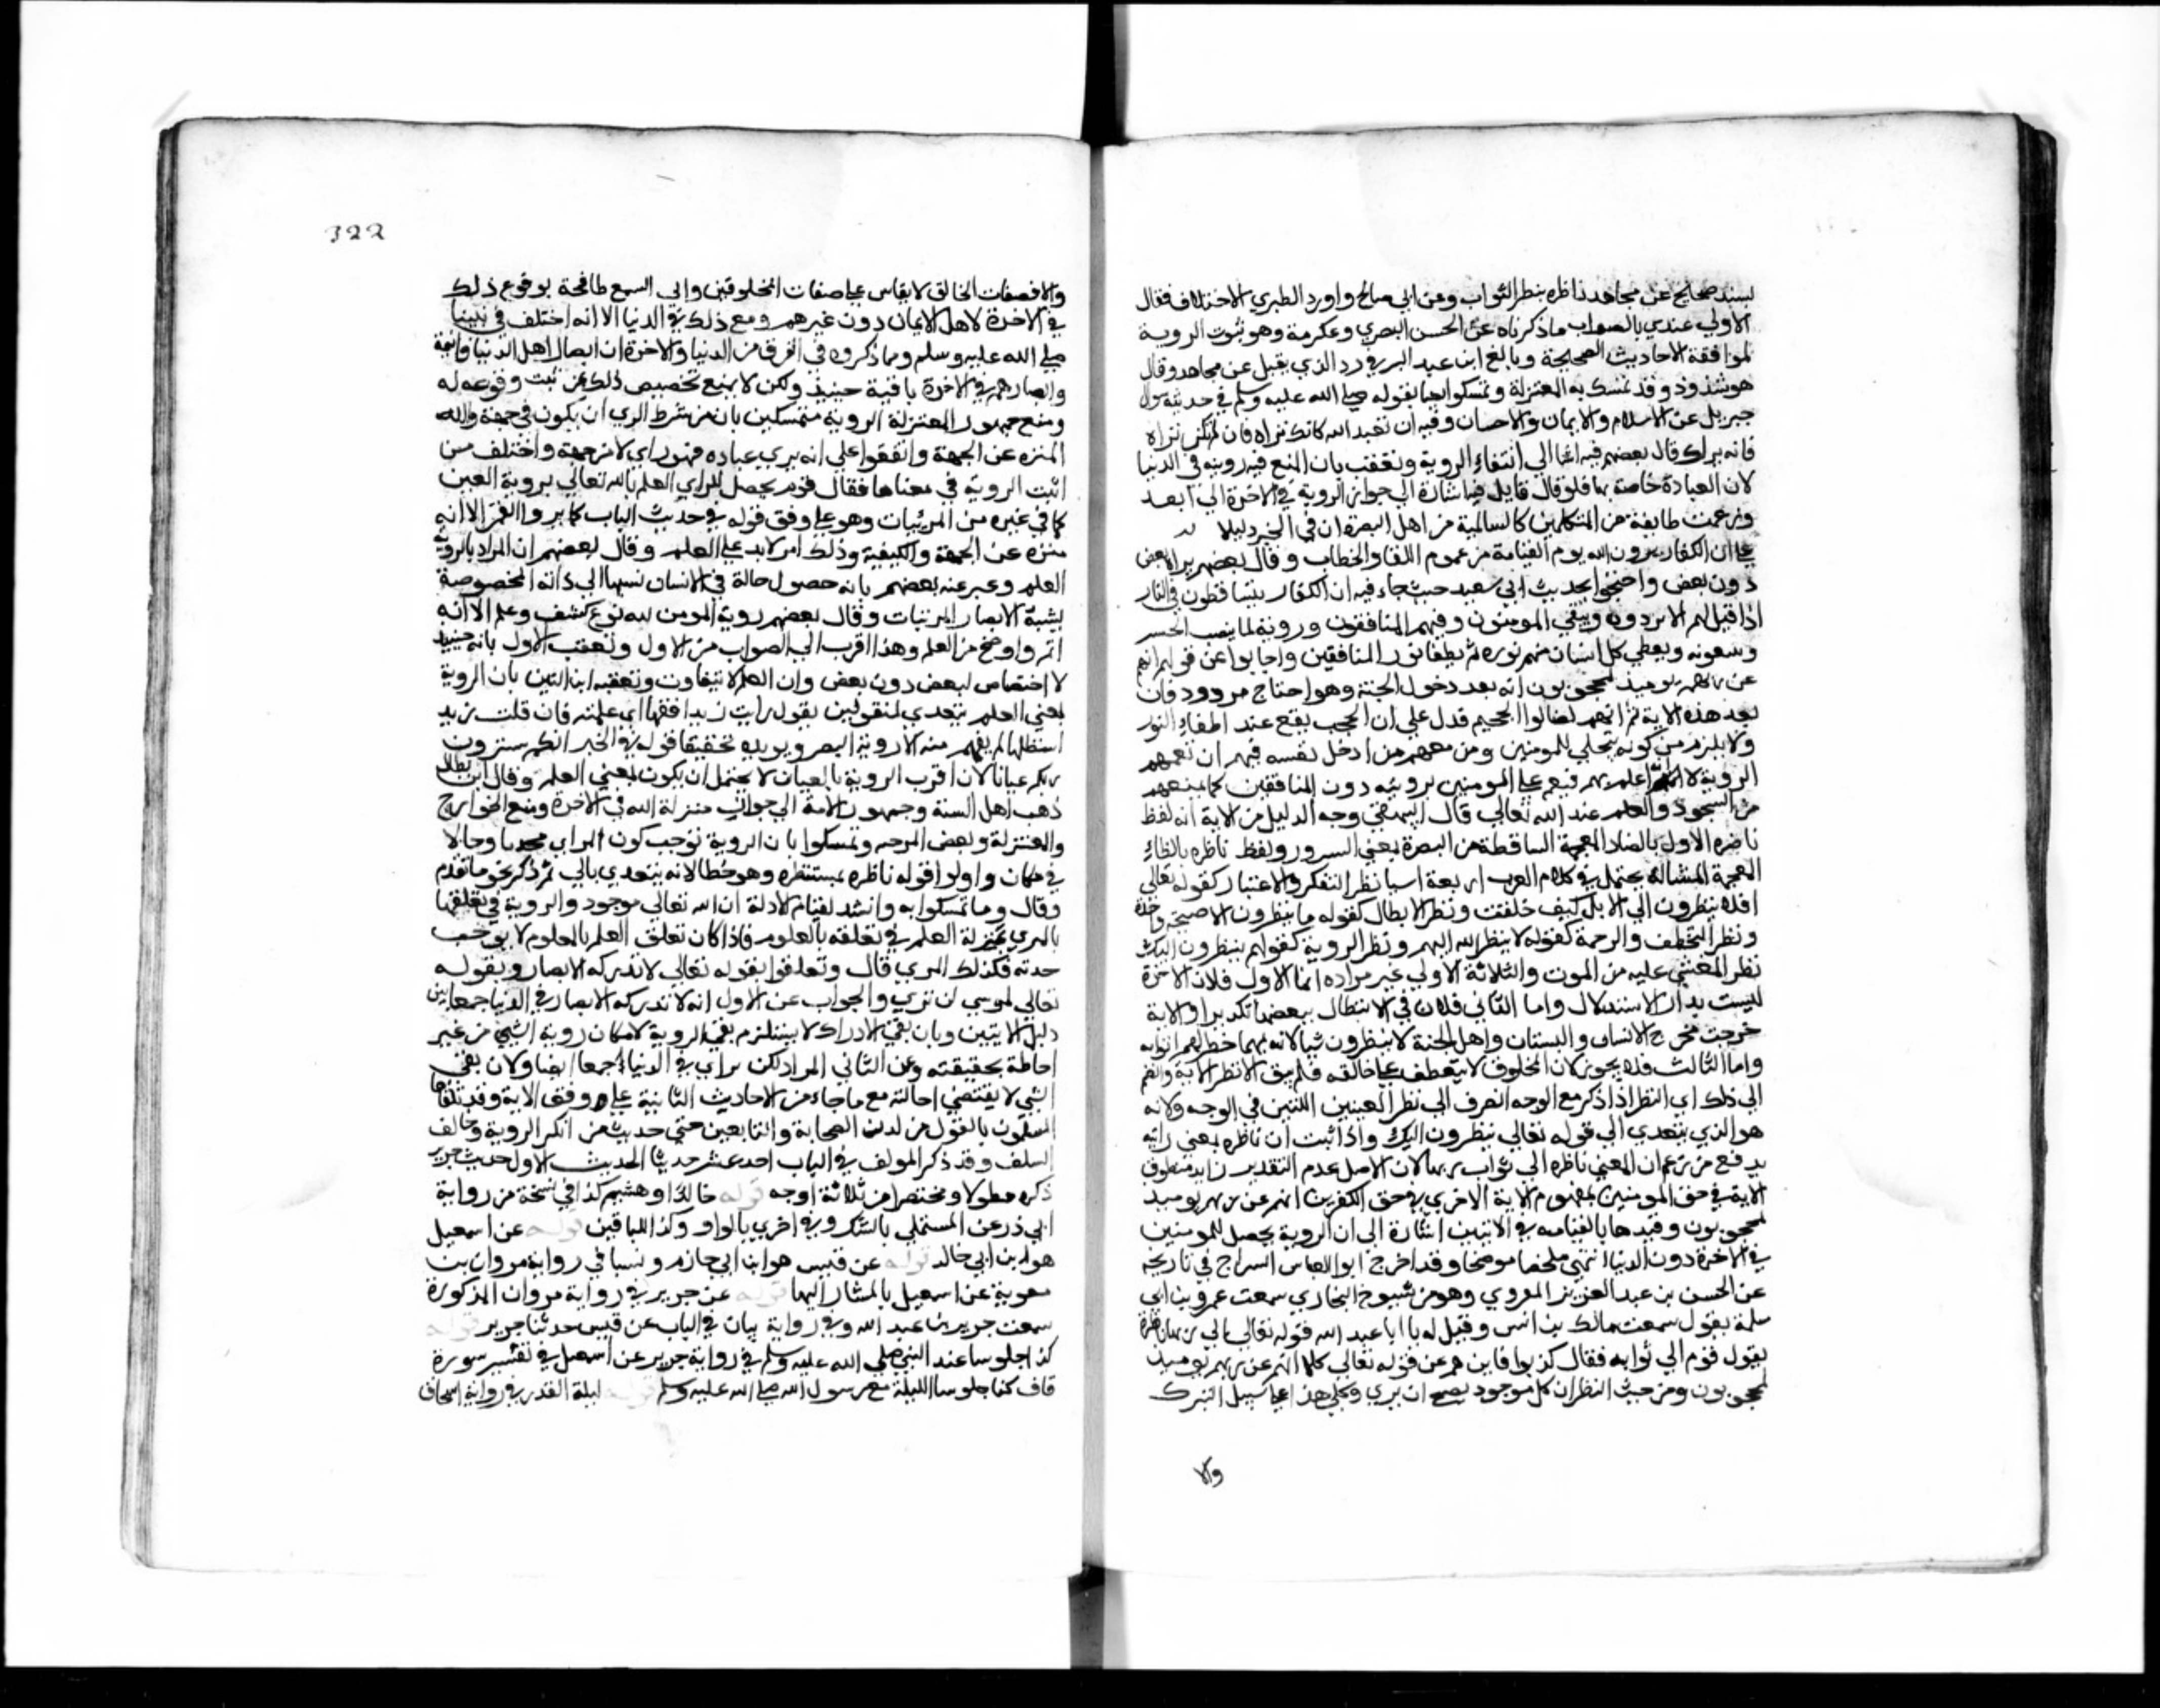 بسند صحيح عن مجاهد ناظره ينظر الثواب وعن ابي صالح واورد الطبري الاختلاف فقال
الاولي عندي بالصواب ما ذكرناه عن الحسن البصري وعكرمة وهو ثبوت الروية
لموافقة الاحاديث الصحيحة وبالغ ابن عبد البر في رد الذي يقبل عن مجاهد وقال
هو شذوذ وقد تمسك به المعتزلة وتمسكوا ايضا بقوله صلي الله عليه وسلم في حديث سوال
جبريل عن الاسلام والايمان والاحسان وفيه ان تعبد الله كانك تراه فان لم تكن تراه
فانه يراك قال بعضهم فيه اشارة الي انتفاء الروية وتعقب بان المنع فيه رويته في الدنيا
لان العبادة خاصة بها فلو قال قايل فيه اشارة الي جواز الروية في الاخرة الي ابعد
وزعمت طايفة من المتكلمين كالسالمية من اهل البصرة ان في الخبر دليلا
علي ان الكفار يرون الله يوم القيامة من عموم اللقا والخطاب وقال بعضهم يراه بعض
دون بعض واحتجوا بحديث ابي سعيد حيث جاء فيه ان الكفار يتساقطون في النار
اذا قيل لهم الا تردون ويبقي المومنون وفيهم المنافقون وروية لما ينصب الجسر
ويتبعونه ويعطي كل انسان منهم نوره ثم يطفا نور المنافقين واجابوا عن قولهم انهم
عن ربهم يوميذ لمحجوبون انه بعد دخول الجنة وهو احتاج مردود فان
بعد هذه الاية ثم انهم لصالوا الجحيم فدل علي ان الحجب يقع عند اطفاء النور
ولا يلزم من كونه يتجلي للمومنين ومن معهم من ادخل نفسه فيهم ان تعمهم
الروية لانه اعلم بهم فينعم علي المومنين برويته دون المنافقين كما يمنعهم
من السجود والعلم عند الله تعالي قال البيهقي وجه الدليل من الاية ان لفظ
ناضره الاول بالضاد المعجمة الساقطة من البصرة يعني السرور ولفظ ناظره بالظاء
المعجمة المشالة يحتمل في كلام العرب اربعة اشيا نظر التفكر والاعتبار كقوله تعالي
افلا ينظرون الي الابل كيف خلقت ونظر الابطال كقوله ما ينظرون الا صيحة واحدة
ونظر التعطف والرحمة كقوله لا ينظر الله اليهم ونظر الروية كقولهم ينظرون اليك
نظر المغشي عليه من الموت والثلاثة الاولي غير مراده اما الاول فلان الاخرة
ليست بدار الاستدلال واما الثاني فلان في الانتظار تنغيصا وتكديرا والاية
خرجت مخرج الامتنان والبستان واهل الجنة لا ينتظرون شيا لانه مهما خطر لهم اتوا به
واما الثالث فلا يجوز لان المخلوق لا يتعطف علي خالقه فلم يبق الا نظر الاية وانضم
الي ذلك اي النظر اذا ذكر مع الوجه انصرف الي نظر العينين اللتين في الوجه ولانه
هو الذي يتعدي الي قوله تعالي ينظرون اليك واذا ثبت ان ناظره بمعني رائيه
يدفع من زعم ان المعني ناظره الي ثواب ربها لان الاصل عدم التقدير زايد منطوق
الاية في حق المومنين بمفهوم الاية الاخري في حق الكفرين انهم عن ربهم يوميذ
لمحجوبون وقيدها بالقيامه في الايتين اشارة الي ان الروية يحصل للمومنين
في الاخرة دون الدنيا انتهي ملخصا موضحا وقد اخرج ابو العباس السراج في تاريخه
عن الحسن بن عبد العزيز المعروي وهو من شيوخ البخاري سمعت عمرو بن ابي
سلمة يقول سمعت مالك بن انس وقيل له يا ابا عبد الله قوله تعالي الي ربها ناظرة
يقول قوم الي ثوابه فقال كذبوا فاين هم عن قوله تعالي كلا انهم عن ربهم يوميذ
لمحجوبون ومن حيث النظر ان كل موجود يصح ان يري وكلي هذا علي سبيل التنزل
والا
322
والا فصفات الخالق لا يقاس علي صفات المخلوقين وادلي السمع طافحة بوقوع ذلك
في الاخرة لاهل الايمان دون غيرهم ومع ذلك في الدنيا الا انه اختلف في نبينا
صلي الله عليه وسلم وما ذكروه في الفرق من الدنيا والاخرة ان ابصار اهل الدنيا فانية
وابصارهم في الاخرة باقية حينيذ ولكن لا يمنع تخصيص ذلك من ثبت وقوعه له
ومنع جمهور المعتزلة الروية متمسكين بان من شرط المري ان يكون في جهة والله
المنزه عن الجهة واتفقوا علي انه يري عباده فهو راي لا من جهة واختلف من
اثبت الروية في معناها فقال قوم يحصل للراي العلم بالله تعالي بروية العين
كما في غيره من المرئيات وهو علي وفق قوله في حديث الباب كما يروا القمر الا انه
منزه عن الجهة والكيفية وذلك امر لابد علي العلم وقال بعضهم ان المراد بالروية
العلم وعبر عنه بعضهم بانه حصول حالة في الانسان نسبها الي ذاته المخصوصة
يشبه الابصار المرئيات وقال بعضهم روية المومن لله نوع كشف وعلم الا انه
اتم واوضح من العلم وهذا اقرب الي الصواب من الاول وتعقب الاول بانه حينيذ
لا اختصاص لبعض دون بعض وان العلم لا يتفاوت وتعقبه ابن التين بان الروية
بمعني العلم يتعدي لمفعولين يقول رايت زيدا فقها اي علمته فان قلت زيد
استظلها لم يفهم منه الا روية البصر ويويده تحقيقا قوله في الخبر انكم سترون
ربكم عيانا لان اقرب الروية بالعيان لا يحتمل ان يكون بمعني العلم وقال ابن بطال
ذهب اهل السنة وجمهور الامة الي جواز منزلة الله في الاخرة ومنع الخوارج
والمعتزلة وبعض المرجيه وتمسكوا بان الروية توجب كون المراي محدثا وحالا
في مكان واولوا قوله ناظره بمستنظره وهو خطا لانه يتعدي بالي ثم ذكر نحو ما تقدم
وقال وما تمسكوا به وانشد لقيام الادلة ان الله تعالي موجود والروية في تعلقها
بالمري بمنزلة العلم في تعلقه بالعلوم فاذا كان تعلق العلم بالمعلوم لا يوجب
حدثه فكذلك المري قال وتعلقوا بقوله تعالي لا تدركه الابصار وبقوله
تعالي لموسي لن تري والجواب عن الاول انه لا تدركه الابصار في الدنيا جمعا بين
دليل الايتين وبان نفي الادراك لا يستلزم نفي الروية لامكان روية الشي من غير
احاطة بحقيقته وعن الثاني المراد لكن تراي في الدنيا جمعا ايضا ولان نفي
الشي لا يقتضي احالته مع ما جاء من الاحاديث الثابتة علي وفق الاية وقد تلقاها
المسلمون بالقول من لدن الصحابة والتابعين حتي حديث من انكر الروية وخالف
السلف وقد ذكر المولف في الباب احد عشر حديثا الحديث الاول حديث جرير
ذكره مطولا ومختصرا من ثلاثة اوجه قوله خالد او هشيم كذا في نسخة من رواية
ابي ذر عن المستملي بالشك وفي اخري بالواو وكذا للباقين قوله عن اسمعيل
هو ابن ابي خالد قوله عن قيس هو ابن ابي حازم ونسبا في رواية مروان بن
معوية عن اسمعيل بالمشار اليها قوله عن جرير في رواية مروان المذكورة
سمعت جرير بن عبد الله وفي رواية بيان في الباب عن قيس حدثنا جرير قوله
كذا جلوسا عند النبي صلي الله عليه وسلم في رواية جرير عن اسمعيل في تفسير سورة
قاف كنا جلوسا الليلة مع رسول الله صلي الله عليه وسلم قوله ليلة القدر في رواية اسحاق